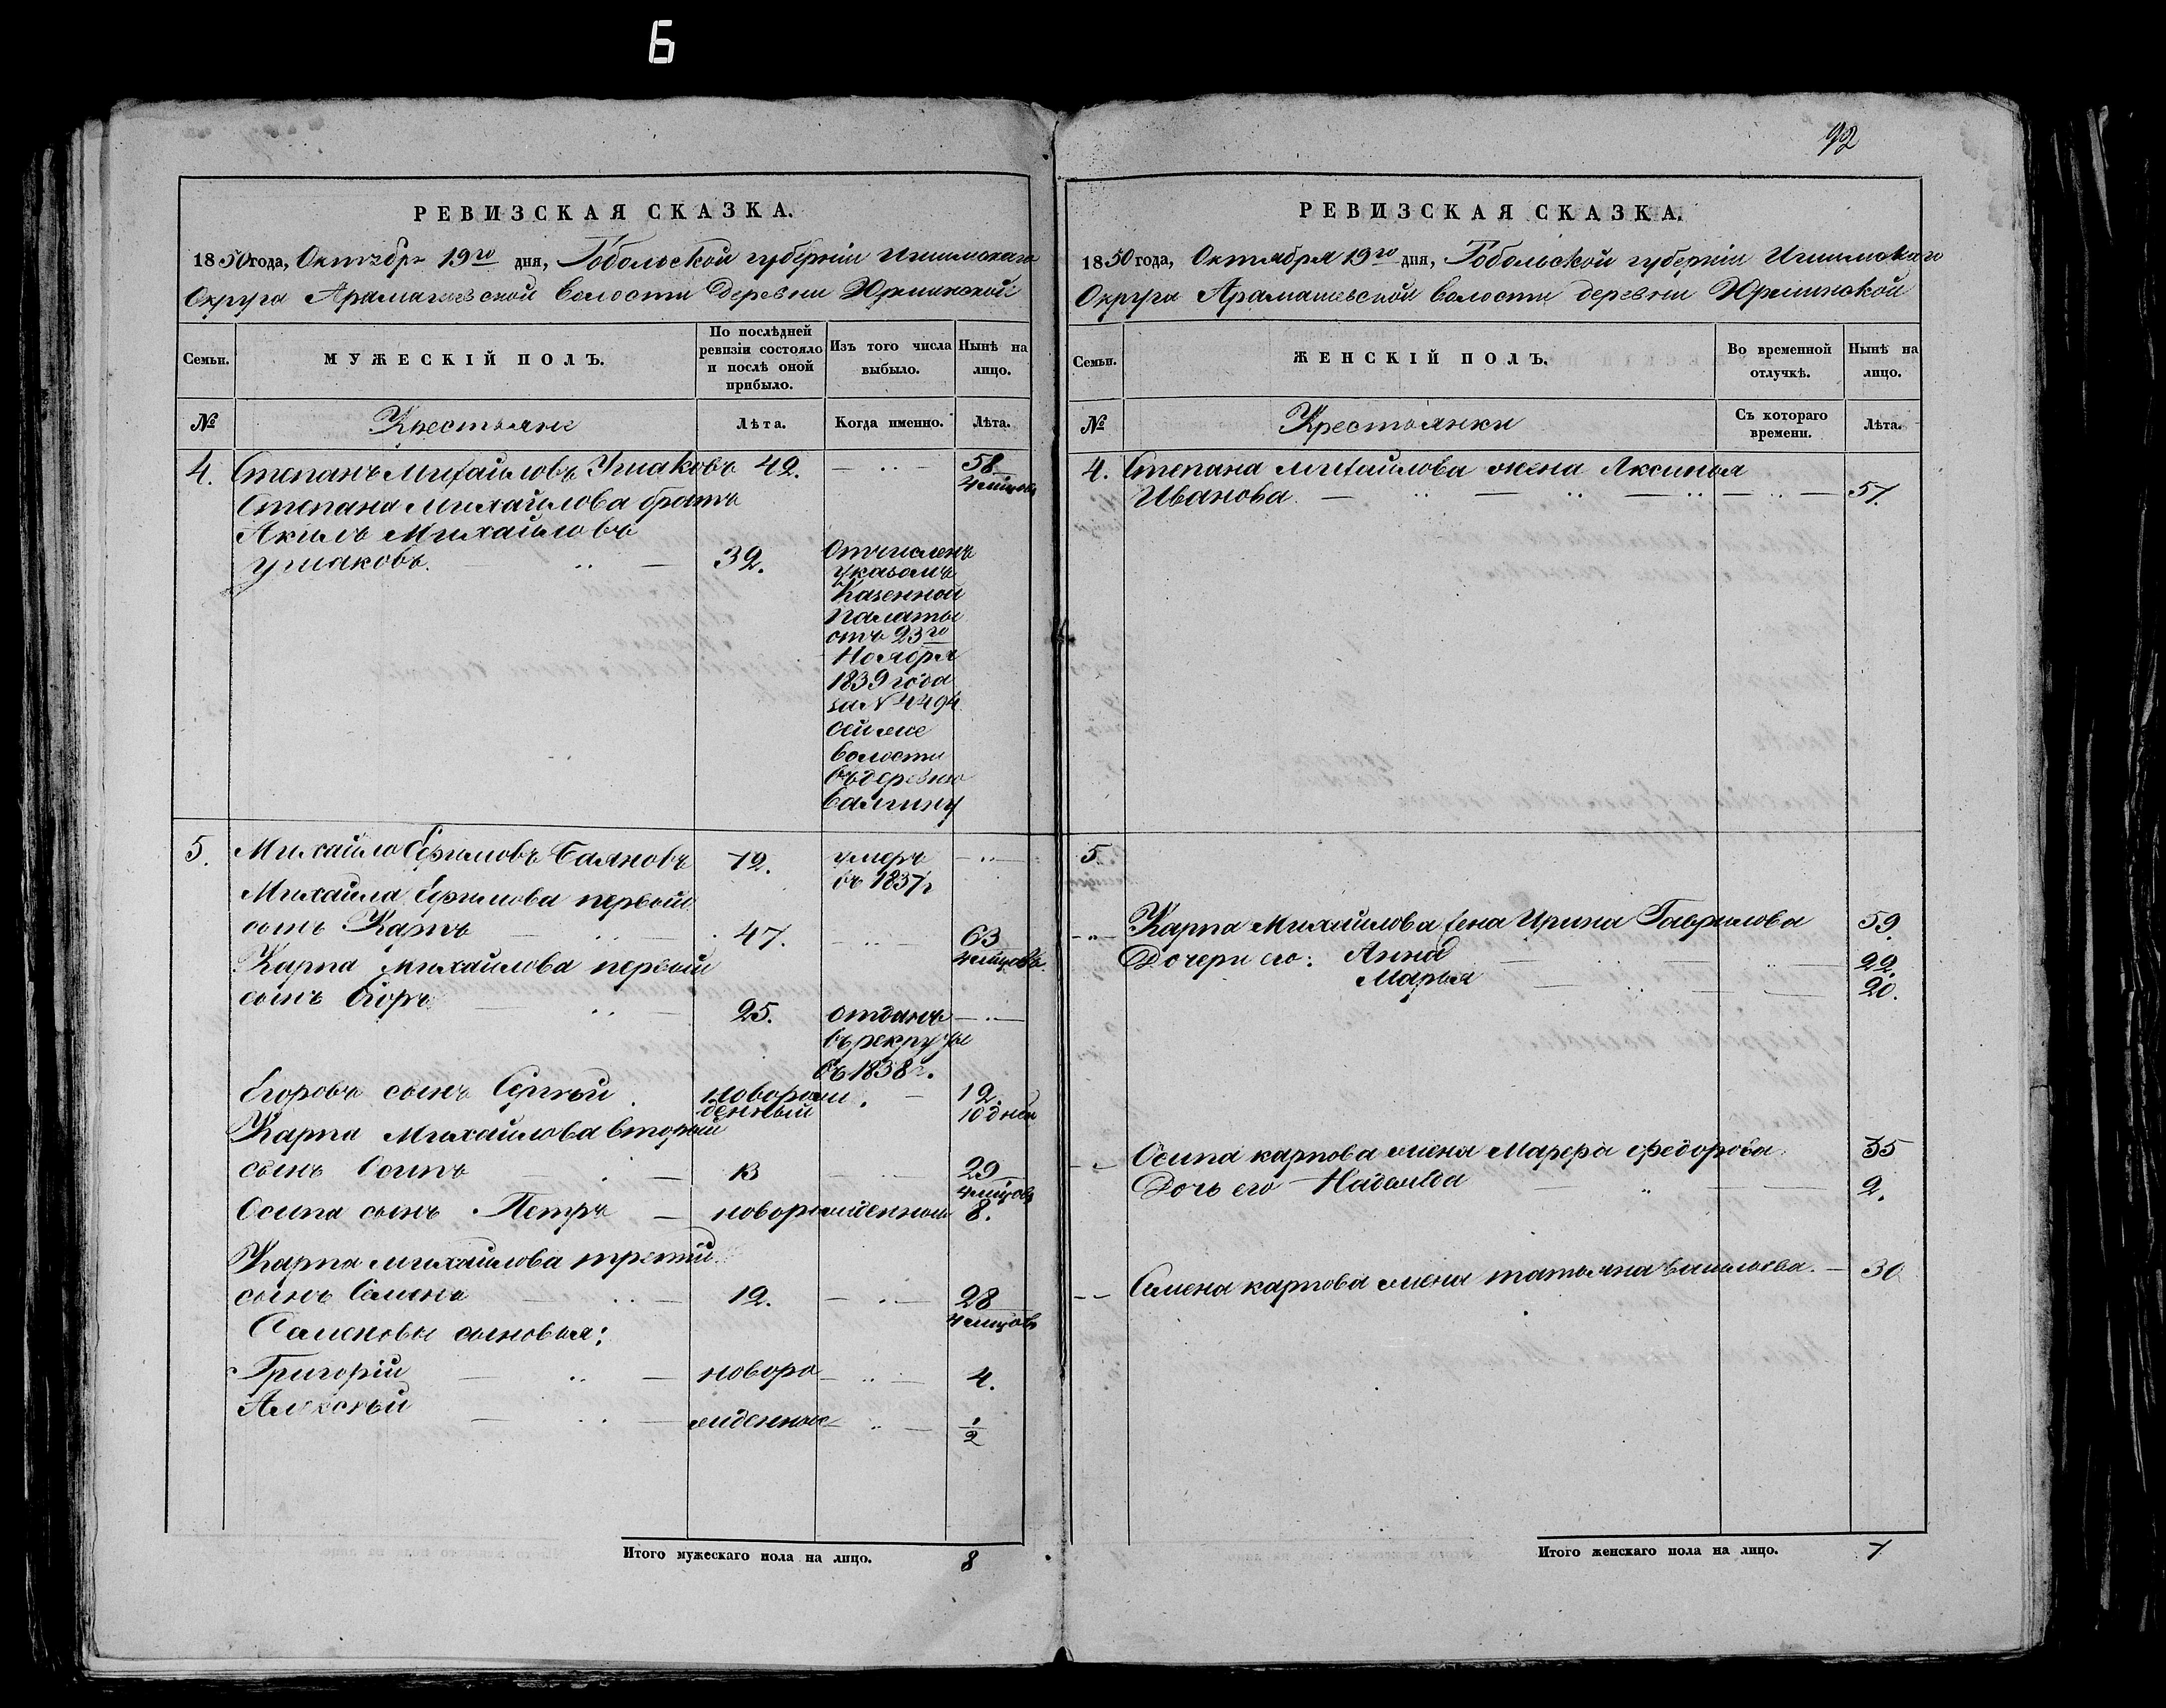 Б
РЕВИЗСКАЯ СКАЗКА.
1850 года, Октября 19го дня, Тобольской губернiи Ишимскаго
Округа Арамашевской волости деревни Юрминской
Семьи. МУЖЕСКIЙ ПОЛЪ. По послѣдней ревизiи состояло и послѣ оной прибыло. Изъ того числа выбыло. Нынѣ на лицо.
№ Крестьяне Лѣта. Когда именно. Лѣта.
4. Степанъ Михайловъ Ушаковъ 42. 58
4 мѣсяцовъ
Степана Михайлова братъ
Акимъ Михайловъ
Ушаковъ. 32. Отчисленъ
указомъ
Казенной
Палаты
отъ 23го
Ноября
1839 года
за № 4494
сей же
волости
въ деревню
5. Михайло Ефимовъ Баяновъ 72. умеръ
въ 1837г
Михайла Ефимова первый
сынъ Карпъ 47. 63
4 мѣсяцовъ
Карпа Михайлова первый
сынъ Егоръ 25. отданъ
въ рекруты
въ 1838 г.
Егоровъ сынъ Сергѣй новорож 12.
денный 10 дней
Карпа Михайлова вторый
сынъ Осипъ 13 29
4 мѣсяцовъ
Осипа сынъ Петръ новорожденной 8.
Карпа Михайлова третiй
сынъ Семенъ 12. 28
4 мѣсяцовъ
Семеновы сыновья:
Григорiй новоро 4.
Алексѣй жденные 1/2
Итого мужескаго пола на лицо. 8
92
РЕВИЗСКАЯ СКАЗКА.
1850 года, Октября 19го дня, Тобольской губернiи Ишимскаго
Округа Арамашевской волости деревни Юрминской
Семьи. ЖЕНСКIЙ ПОЛЪ. Во временной отлучкѣ. Нынѣ на лицо.
№ Крестьянки Съ котораго времени. Лѣта.
4. Степана Михайлова жена Аксинья
Иванова 57.
5
Карпа Михайлова жена Ирина Гаврилова 59.
Дочери его: Анна 22.
Марья 20.
Осипа карпова жена Марфа Федорова 35
Дочь его Надежда 2.
Семена карпова жена татьяна Васильева. 30
Итого женскаго пола на лицо. 7